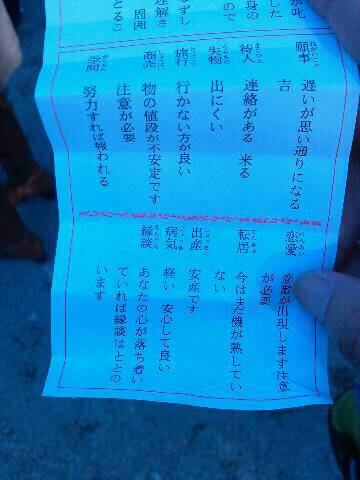 が叱
した
身の
ので
ずし
理解さ
周囲
とるこ
願事 遅いが思い通りになる
吉
待人 連絡がある 来る
失物 出にくい
旅行 行かない方が良い
商売 物の値段が不安定です
注意が必要
学問 努力すれば報われる
恋愛 恋敵が出現します注意
が必要
転居 今はまだ機が熟してい
ない
出産 安産です
病気 軽い 安心して良い
縁談 あなたの心が落ち着い
ていれば縁談はととの
います